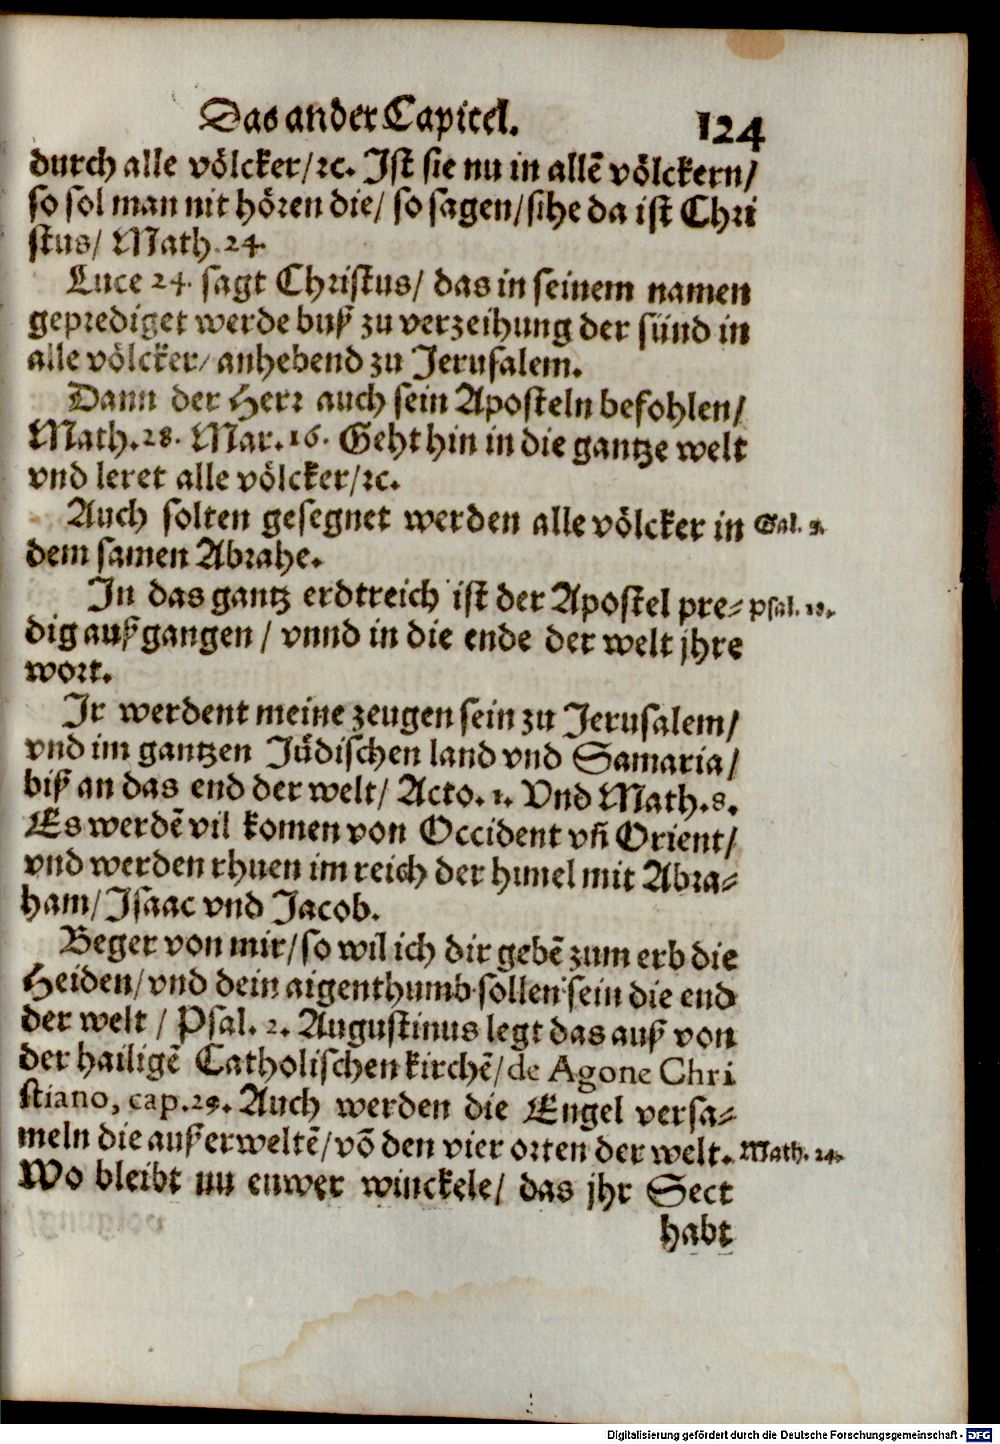 Das ander Capitel. 124
durch alle völcker/ꝛc. Ist sie nu in allẽ völckern/
so sol man nit hören die/ so sagen/ sihe da ist Chri
stus/ Math. 24.
Luce 24. sagt Christus/ das in seinem namen
geprediget werde buß zu verzeihung der sünd in
alle völcker/ anhebend zu Jerusalem.
Dann der Herr auch sein Aposteln befohlen/
Math. 28. Mar. 16. Geht hin in die gantze welt
vnd leret alle völcker/ꝛc.
Auch solten gesegnet werden alle völcker in Gal. 3.
dem samen Abrahe.
In das gantz erdtreich ist der Apostel pre- Psal. 18.
dig außgangen / vnnd in die ende der welt jhre
wort.
Ir werdent meine zeugen sein zu Jerusalem/
vnd im gantzen Jüdischen land vnd Samaria/
biß an das end der welt/ Acto. 1. Vnd Math. 8.
Es werdẽ vil komen von Occident vñ Orient/
vnd werden rhuen im reich der himel mit Abra-
ham/ Isaac vnd Jacob.
Beger von mir/ so wil ich dir gebẽ zum erb die
Heiden/ vnd dein aigenthumb sollen sein die end
der welt / Psal. 2. Augustinus legt das auß von
der hailigẽ Catholischen kirchẽ/ de Agone Chri
stiano, cap. 29. Auch werden die Engel versa-
meln die außerweltẽ/ võ den vier orten der welt. Math. 24.
Wo bleibt nu euwer winckele/ das jhr Sect
habt
Digitalisierung gefördert durch die Deutsche Forschungsgemeinschaft - DFG